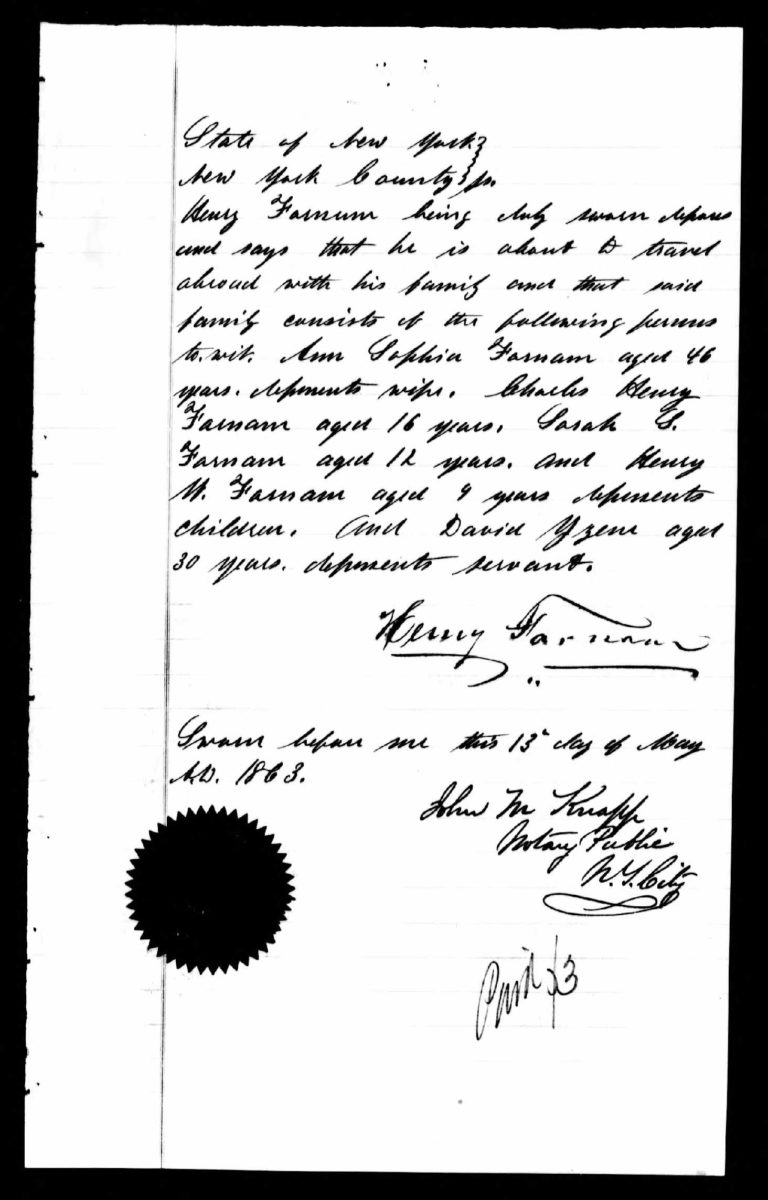 State of New York }
New York County } ss.
Henry Farnam being duly sworn deposes
and says that he is about to travel
abroad with his family and that said
family consists of the following persons
to. wit. Ann Sophia Farnam aged 46
years. deponents wife. Charles Henry
Farnam aged 16 years. Sarah S.
Farnam aged 12 years. and Henry
W. Farnam aged 9 years deponents
children. And David aged
30 years. deponents servant.
Henry Farnam
Sworn before me this 13 day of May
A.D. 1863.
John M Knapp
Notary Public
N.Y. City
Paid $3